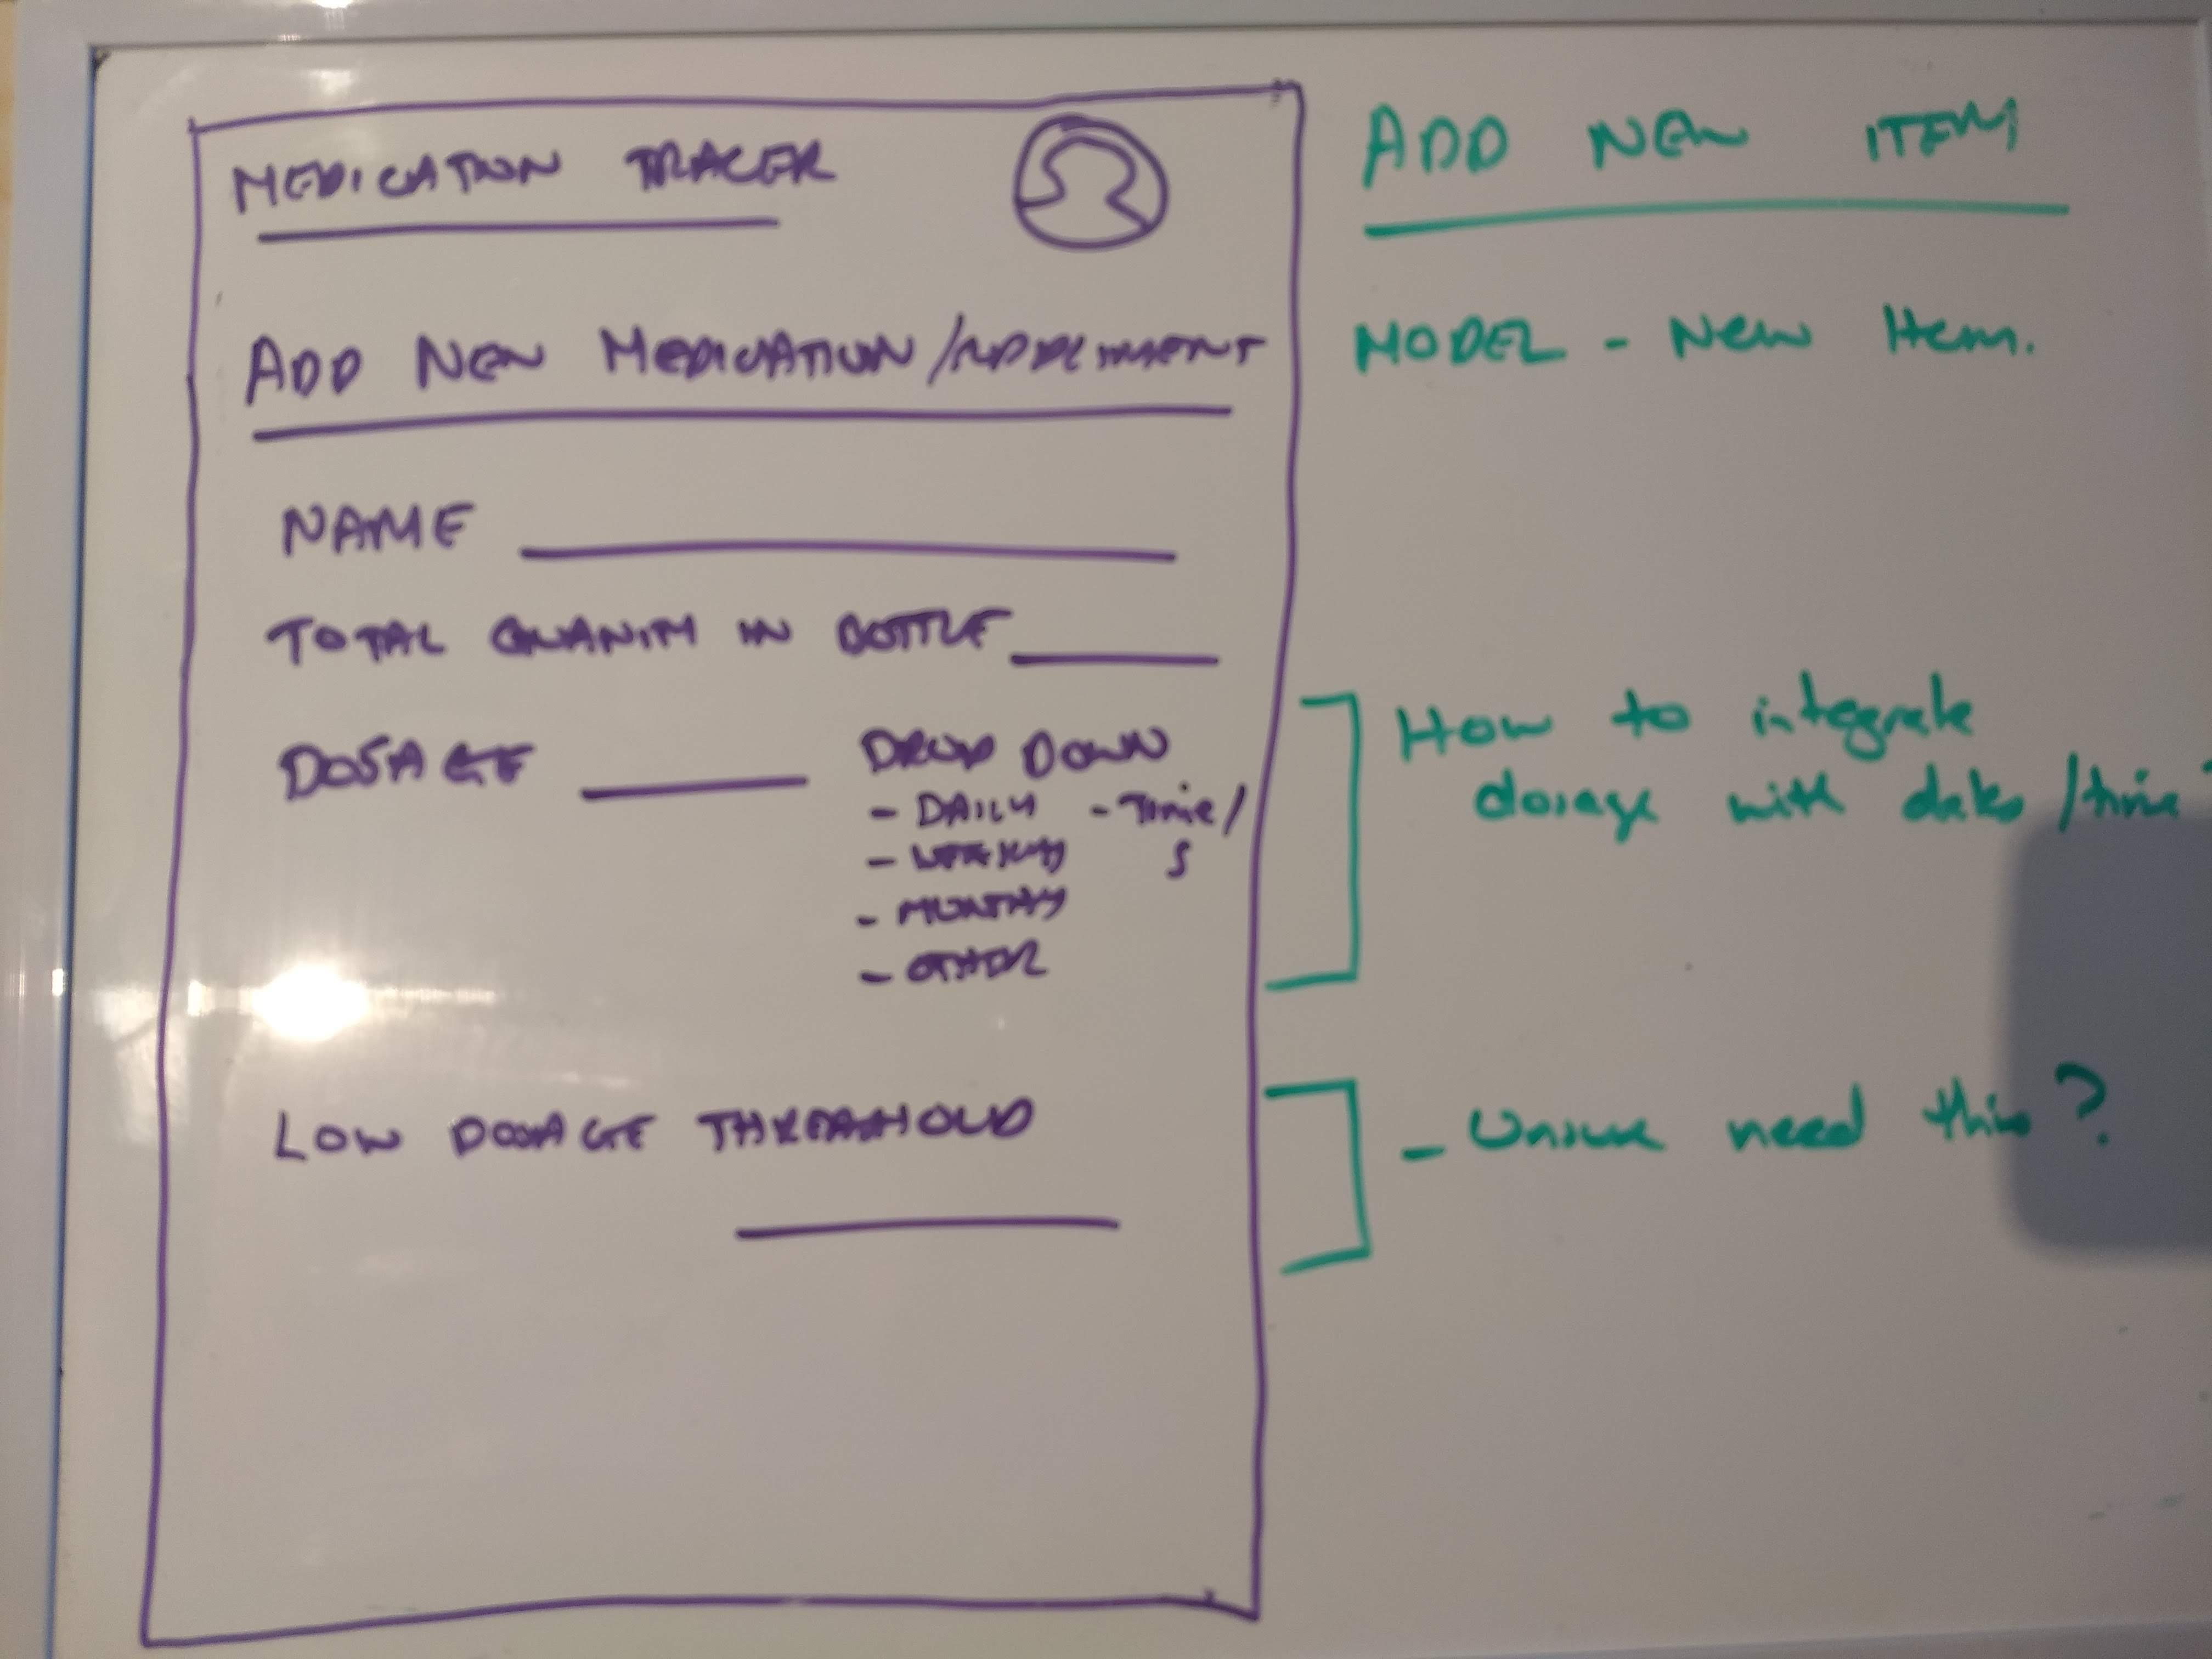 MEDICATION TRACER
ADD NEW MEDICATION/
NAME
TOTAL QUANITY IN BOTTLE
DOSAGE
DROP DOWN
- DAILY - Time/
s
- WEEKLY
- MONTHY
- OTHER
LOW DOSAGE THRESHOLD
ADD NEW ITEM
MODEL - New Item.
How to integrate
dosage with dates/time?
- Unsure need this?